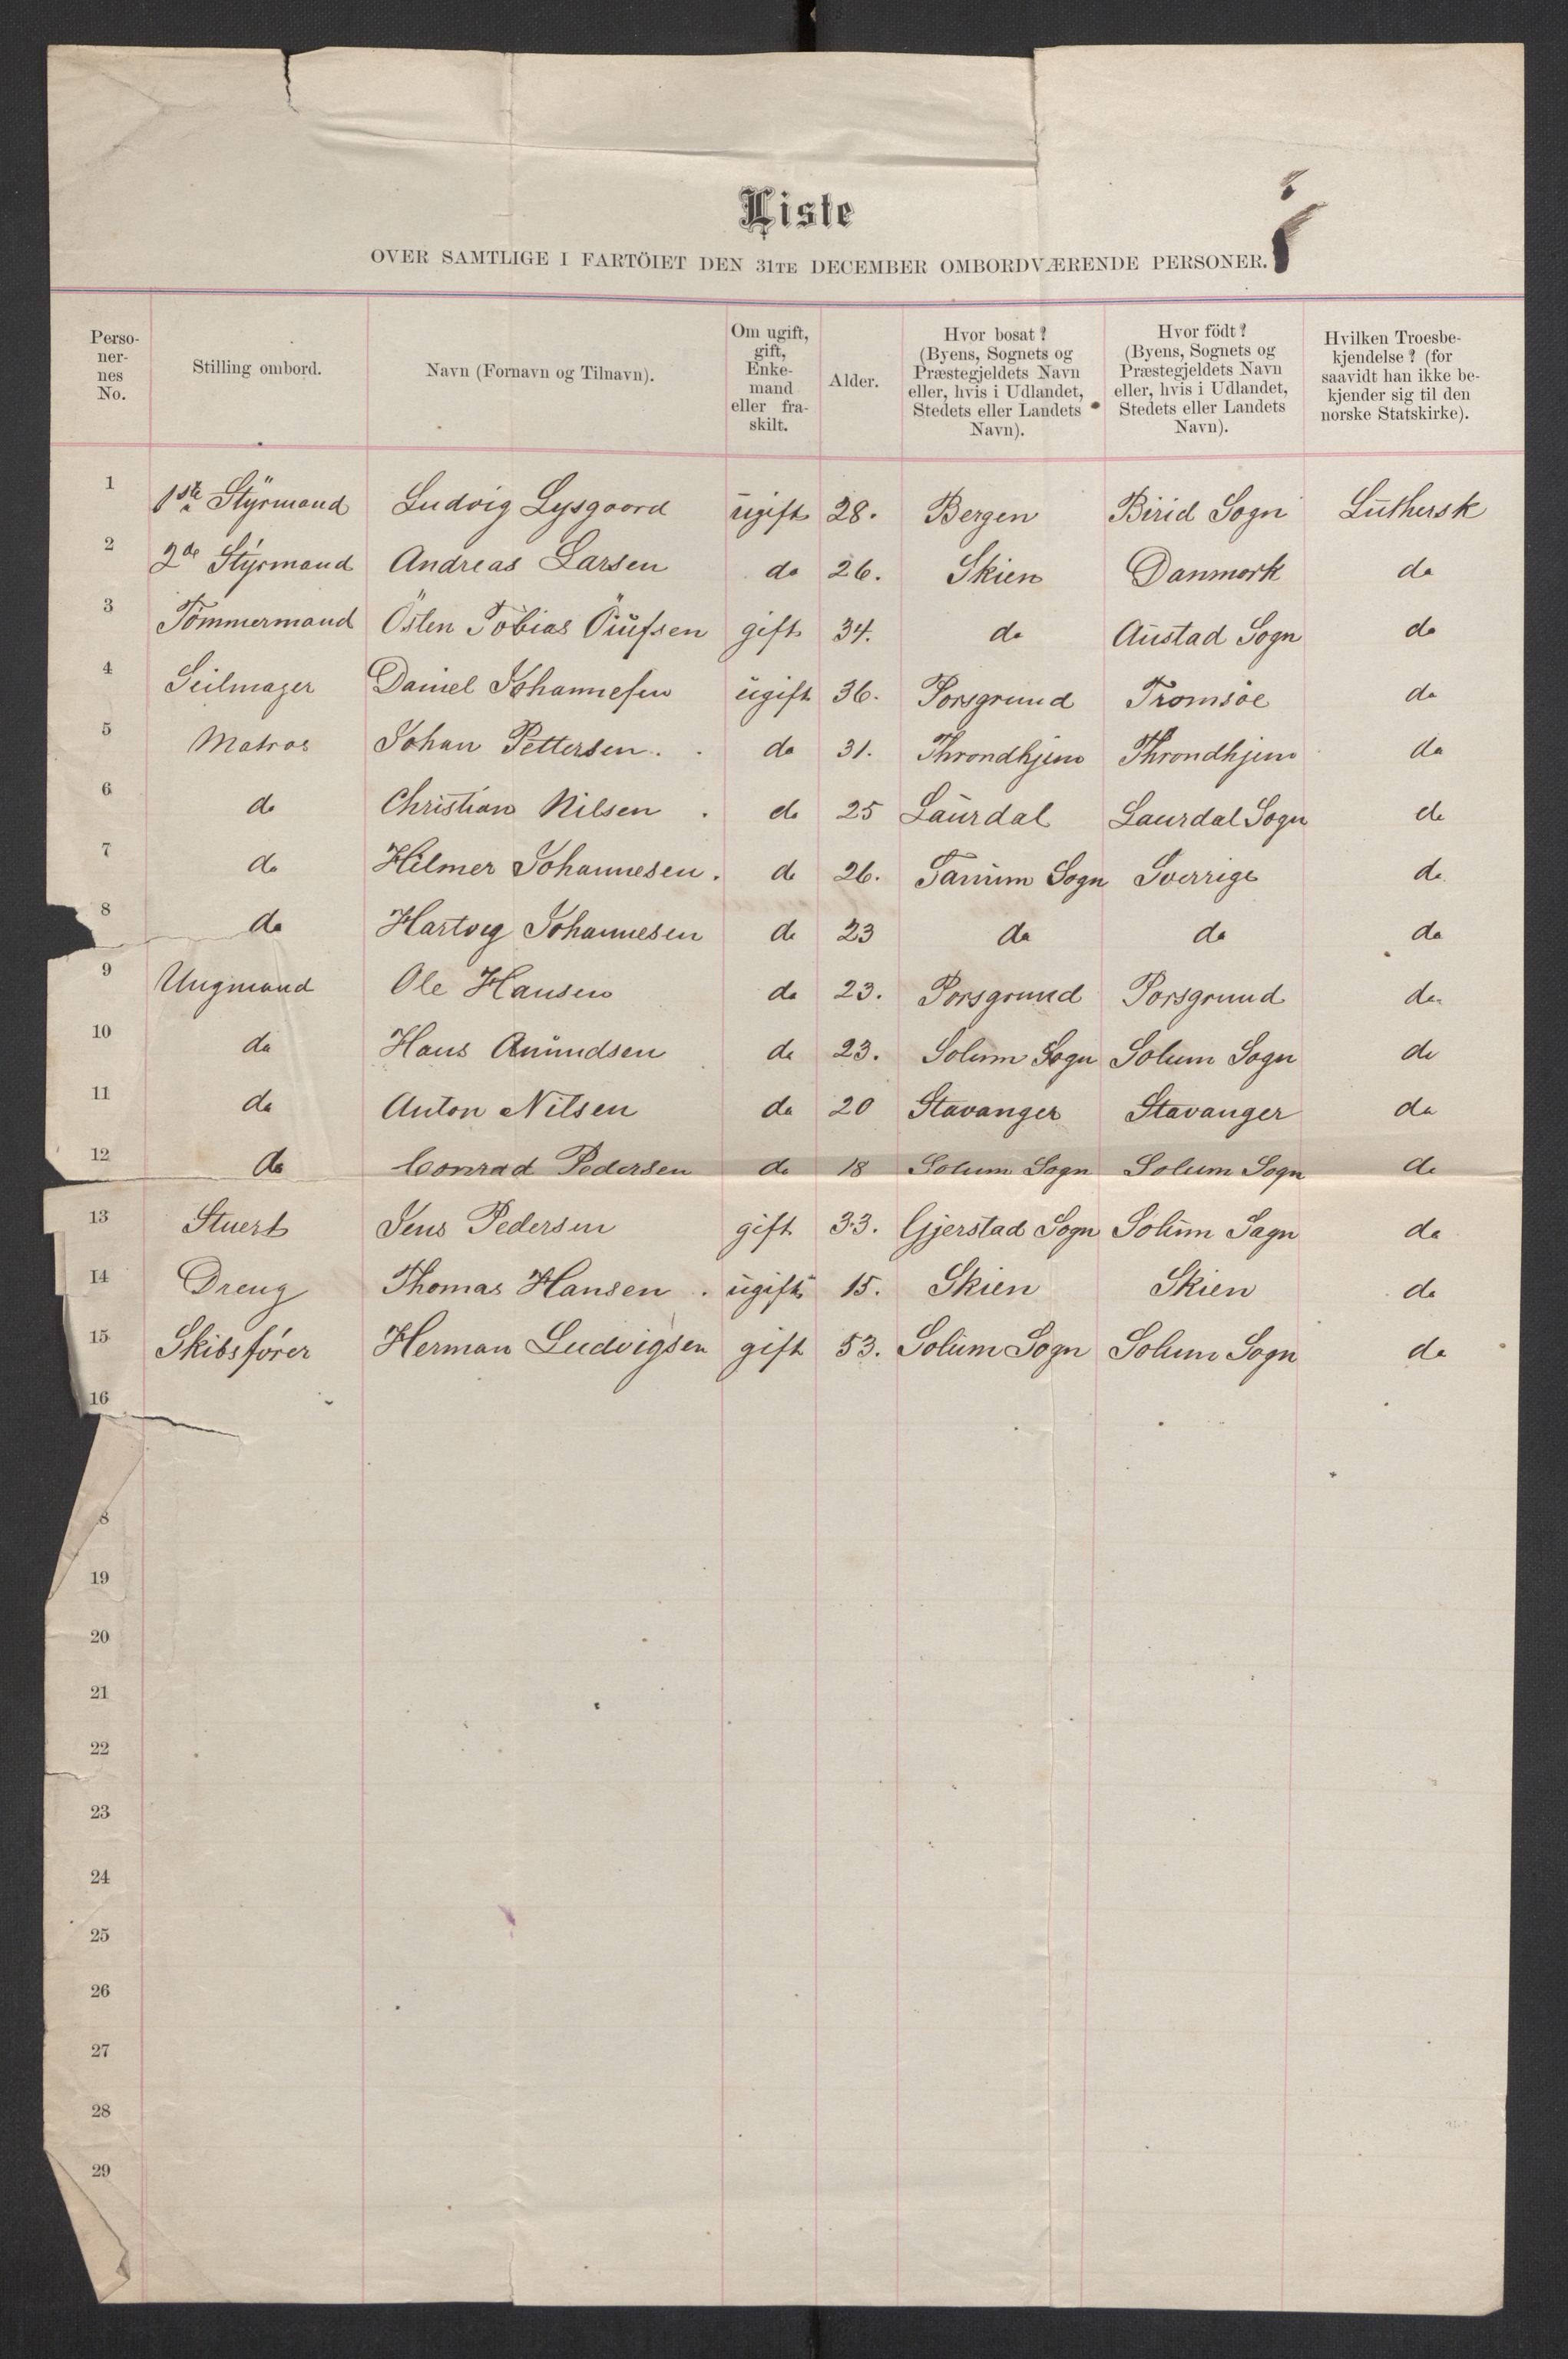 Liste
OVER SAMTLIGE I FARTÖIET DEN 31TE DECEMBER OMBORDVÆRENDE PERSONER.
Perso-
ner-
nes
No.
Stilling ombord.
Navn (Fornavn og Tilnavn).
Om ugift,
gift,
Enke-
mand
eller fra-
skilt.
Alder.
Hvor bosat?
(Byens, Sognets og
Præstegjeldets Navn
eller, hvis i Udlandet,
Stedets eller Landets
Navn).
Hvor födt?
(Byens, Sognets og
Præstegjeldets Navn
eller, hvis i Udlandet,
Stedets eller Landets
Navn).
Hvilken Troesbe-
kjendelse? (for
saavidt han ikke be-
kjender sig til den
norske Statskirke).
1 1ste Styrmand Ludvig Lysgaard ugift 28. Bergen Birid Sogn Luthersk
2 2de Styrmand Andreas Larsen do 26. Skien Danmark do
3 Tömmermand Östen Tobias gift 34. do Austad Sogn do
4 Seilmager Daniel Johannesen ugift 36. Porsgrund Tromsöe do
5 Matros Johan Pettersen. do 31. Throndhjem Throndhjem do
6 do Christian Nilsen do 25 Laurdal Laurdal Sogn do
7 do Hilmer Johannesen. do 26. Tanum Sogn Sverrige do
8 do Hartvig Johannesen do 23 do do do
9 Ungmand Ole Hansen do 23. Porsgrund Porsgrund do
10 do Hans Amundsen do 23. Solum Sogn Solum Sogn do
11 do Anton Nilsen do 20 Stavanger Stavanger do
12 do Conrad Pedersen do 18 Solum Sogn Solum Sogn do
13 Stuert Jens Pedersen gift 33. Gjerstad Sogn Solum Sogn do
14 Dreng Thomas Hansen ugift 15. Skien Skien do
15 Skibsförer Herman Ludvigsen gift 53. Solum Sogn Solum Sogn do
16
8
19
20
21
22
23
24
25
26
27
28
29